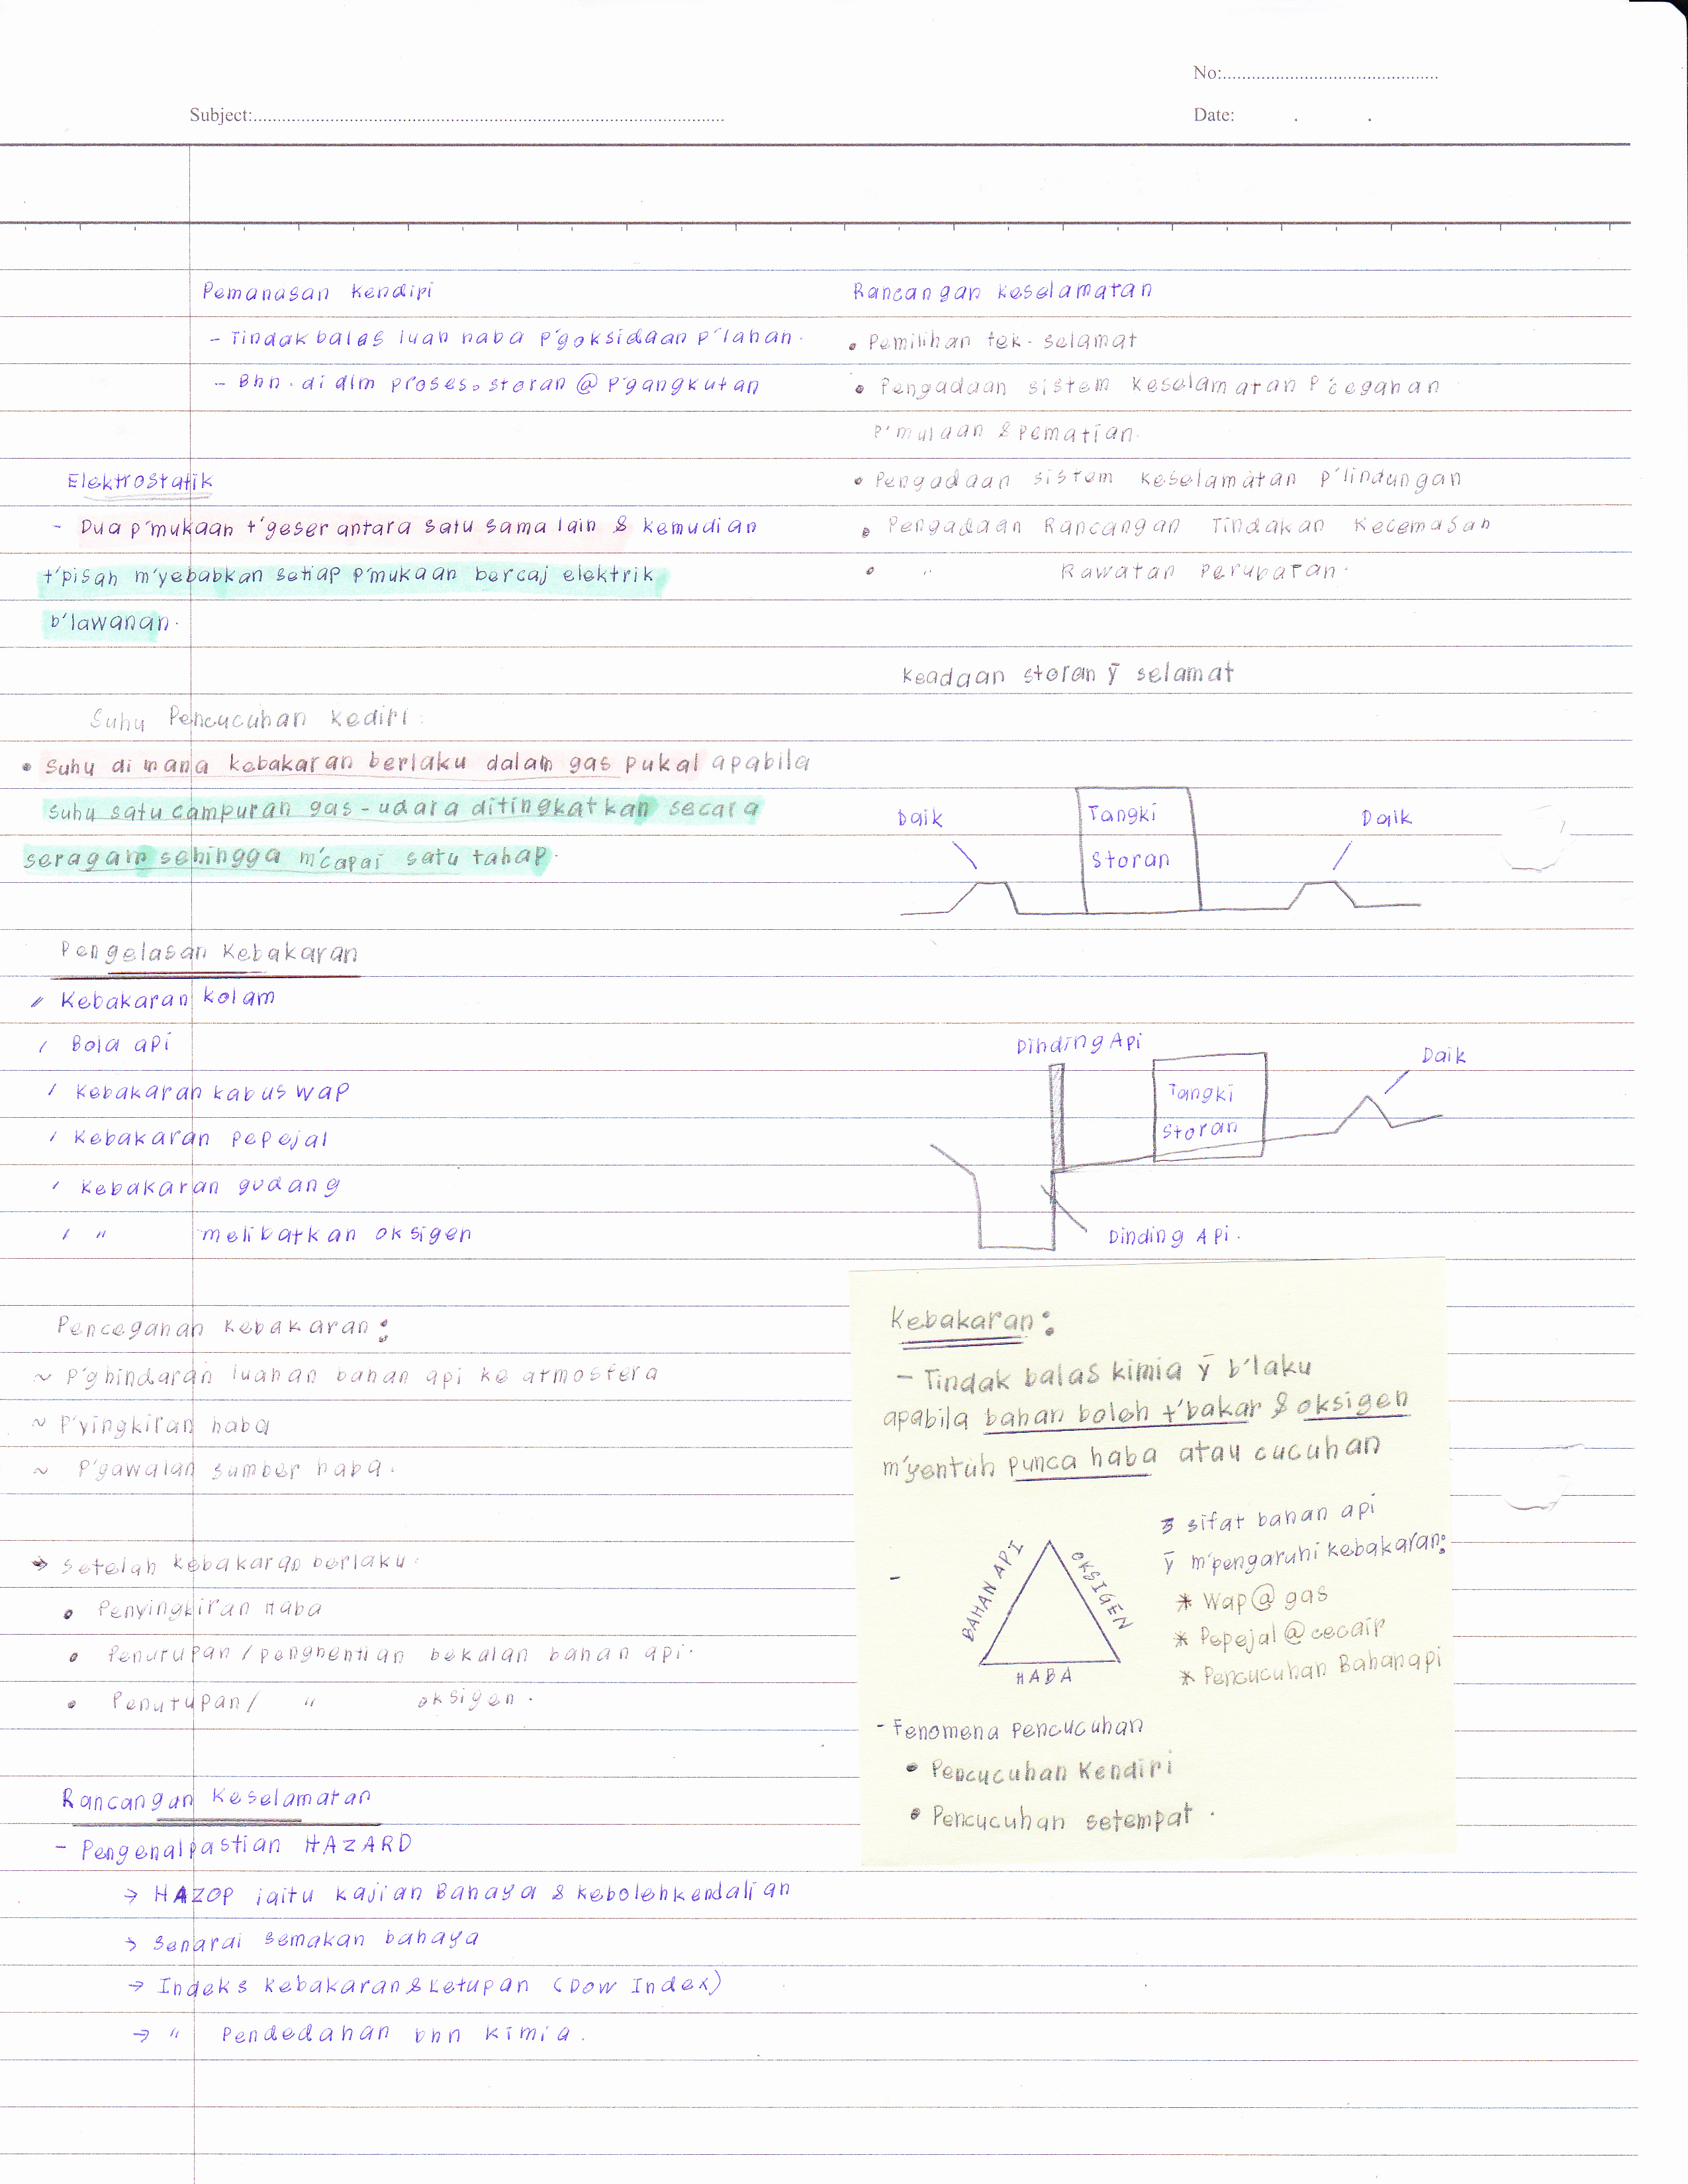 No:
Subject:
Date: . .
Pemanasan Kendiri
- Tindak balas luah haba p'goksidaan p'lahan.
- Bhn. di dlm proses, storan @ p'gangkutan
Elektrostatik
- Dua p'mukaan t'geser antara satu sama lain & kemudian
t'pisah m'yebabkan setiap p'mukaan bercaj elektrik
b'lawanan.
Suhu Pencucuhan Kediri:
• Suhu di mana kebakaran berlaku dalam gas pukal apabila
suhu satu campuran gas-udara ditingkatkan secara
seragam sehingga m'capai satu tahap.
Pengelasan Kebakaran
Kebakaran kolam
Bola api
Kebakaran kabus wap
Kebakaran pepejal
Kebakaran gudang
" melibatkan oksigen
Pencegahan Kebakaran:
~ P'ghindaran luahan bahan api ke atmosfera
~ P'yingkiran haba
~ P'gawalan sumber haba.
→ Setelah kebakaran berlaku:
• Penyingkiran Haba
• Penutupan / penghentian bekalan bahan api.
• Penutupan / " oksigen.
Rancangan Keselamatan
- Pengenalpastian HAZARD
→ HAZOP iaitu kajian Bahaya & Kebolehkendalian
→ Senarai semakan bahaya
→ Indeks Kebakaran & Letupan (Dow Index)
→ " Pendedahan bhn kimia.
Rancangan Keselamatan
• Pemilihan tek. selamat
• Pengadaan sistem keselamatan p'cegahan
p'mulaan & pematian.
• Pengadaan sistem keselamatan p'lindungan
• Pengadaan Rancangan Tindakan Kecemasan
• " Rawatan Perubatan.
Keadaan storan ȳ selamat
Daik
Tangki
Storan
Daik
Dinding Api
Tangki
Storan
Daik
Dinding Api.
Kebakaran:
- Tindak balas kimia ȳ b'laku
apabila bahan boleh t'bakar & oksigen
m'yentuh punca haba atau cucuhan
- BAHAN API
OKSIGEN
HABA
3 sifat bahan api
ȳ m'pengaruhi kebakaran:
* Wap @ gas
* Pepejal @ cecair
* Pencucuhan Bahanapi
- Fenomena Pencucuhan
• Pencucuhan Kendiri
• Pencucuhan setempat.